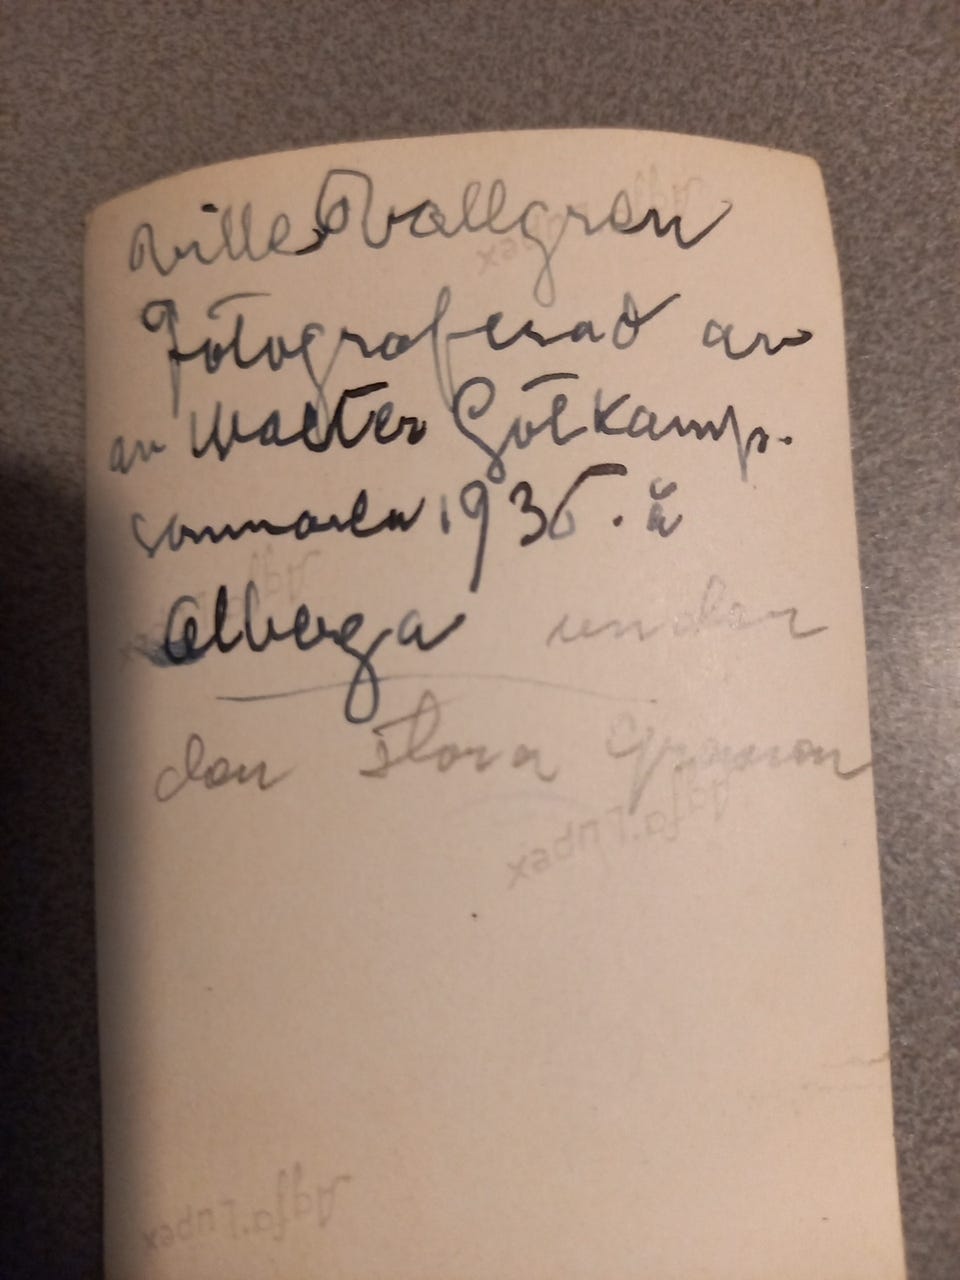 Ville Vallgren
Fotograferad av
av Walter Gôtkamp.
sommaren 1935. i
Alberga under
den stora Granen
Agfa.Lupex
Agfa.Lupex